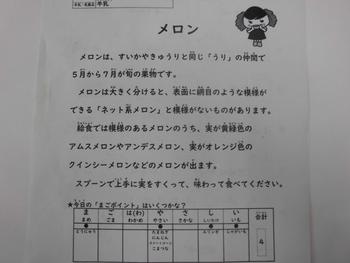 牛乳
メロン
メロンは、すいかやきゅうりと同じ「うり」の仲間で
5月から7月が旬の果物です。
メロンは大きく分けると、表面に網目のような模様が
できる「ネット系メロン」と模様がないものがあります。
給食では模様のあるメロンのうち、実が黄緑色の
アムスメロンやアンデスメロン、実がオレンジ色の
クインシーメロンなどのメロンが出ます。
スプーンで上手に実をすくって、味わって食べてください。
★今日の「まごポイント」はいくつかな?
ま ご は(わ) や さ し い 合計
まめ ごま わかめ やさい さかな しいたけ いも
● ● ● ●
とうにゅう たまねぎ エリンギ じゃがいも 4
にんじん
こまつな